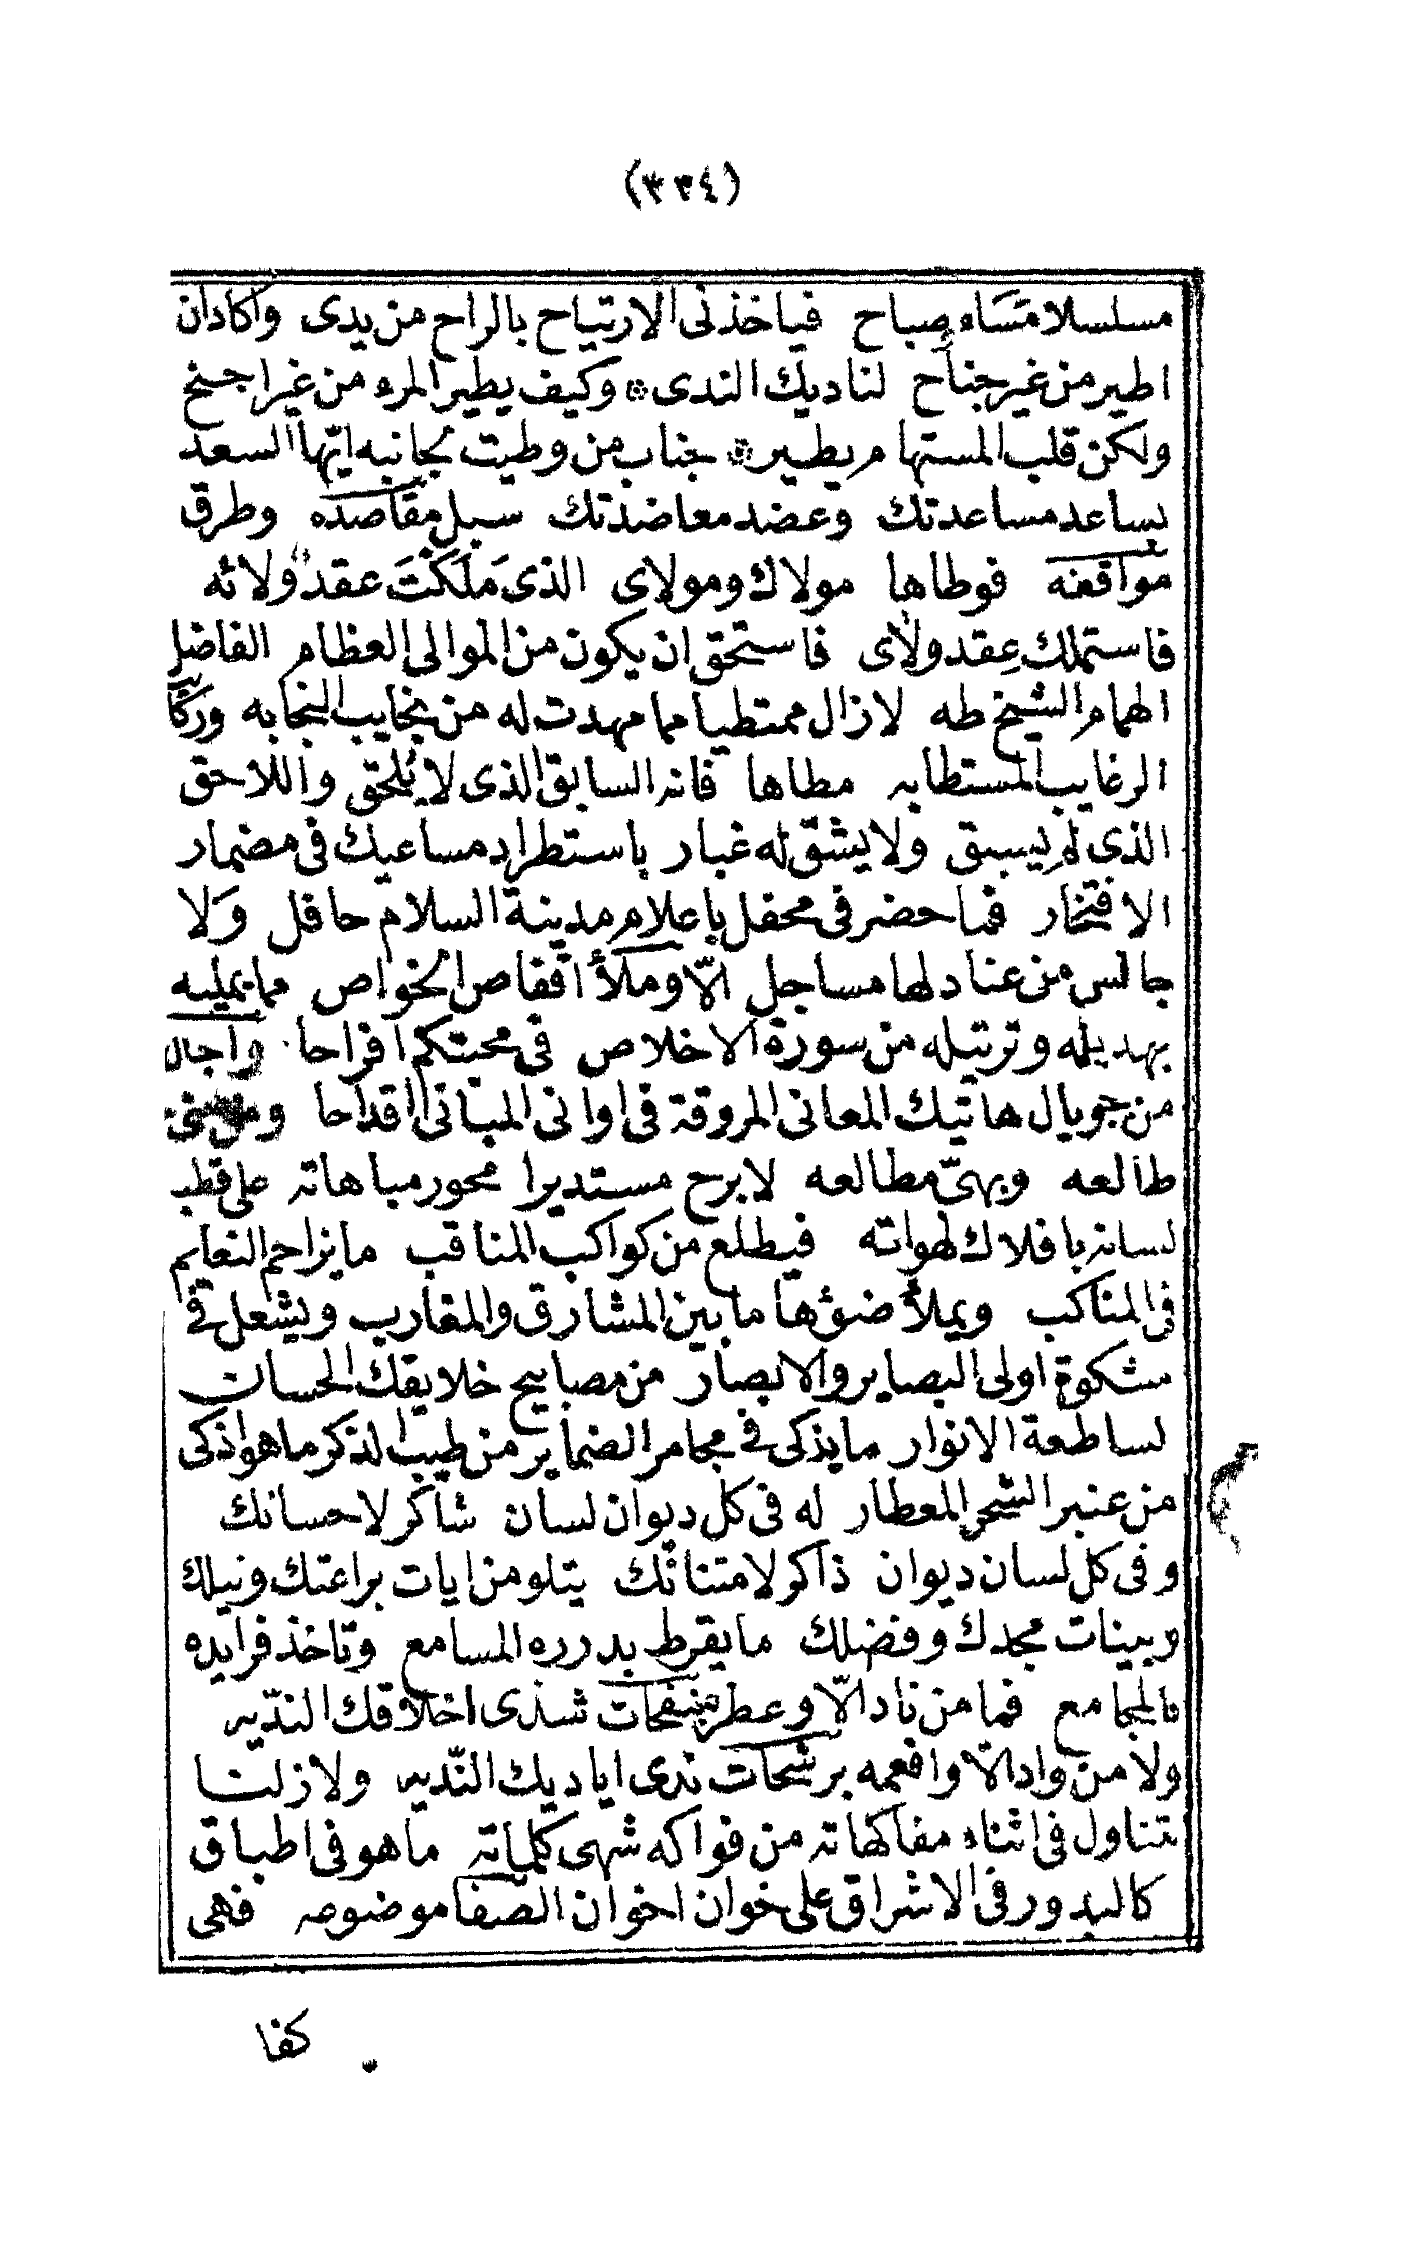 (٣٣٤)
مسلسلا مَسَاء صباح فياخذنى الارتياح بالراح من يدى واكاد ان
اطير من غير جناح لناديك الندى * وكيف يطير المرء من غير اجنح
ولكن قلب المستهام يطير * جناب من وطيت بجانبه ايّها السعد
بساعد مساعدتك وعضد معاضدتك سبل مقاصده وطرق
مواقفه فوطاها مولاك ومولاى الذى مَلَكْتَ عقد ولائه
فاستملك عِقد ولاى فاستحق ان يكون من الموالى العظام الفاضل
الهمام الشيخ طه لازال ممتطيا مما مهدت له من نجايب النجابه وركاب
الرغايب المستطابه مطاها فانه السابق الذى لا يُلحق واللاحق
الذى لم يسبق ولا يشقّ له غبار باستطراد مساعيك فى مضمار
الافتخار فما حضر فى محفل باعلام مدينة السلام حافل وَلا
جالس من عنادلها مساجل الّا وملأ اقفاص الخواص مما يمليه
بهديله وترتيله من سورة الاخلاص فى محبتكم افراحا واجال
من جريال هاتيك المعانى المروقة فى اوانى المبانى اقداحا
طالعه وبهىّ مطالعه لابرح مستديرا محور مباهاته على قطب
لسانه بافلاك لهواته فيطلع من كواكب المناقب ما يزاحم النعايم
فى المناكب ويملأ ضوؤها ما بين المشارق والمغارب ويشعل فى
مشكوة اولى البصاير والابصار من مصابيح خلايقك الحسان
لساطعة الانوار ما يذكى فى مجامر الضماير من طيب الذكر ما هو اذكى
من عنبر الشحر المعطار له فى كل ديوان لسان شاكر لاحسانك
وفى كل لسان ديوان ذاكر لامتنانك يتلو من ايات براعتك ونبلك
وبينات مجدك وفضلك ما يقرط بدرره المسامع وتاخذ فرايده
بالمجامع فما من ناد الّا وعطره بنفحات شذى اخلاقك النديّه
ولا من واد الّا وافعمه برشحات ندى اياديك النّديه ولازلنا
نتناول فى اثناء مفاكهاته من فواكه شهى كلماته ما هو فى اطباق
كالبدور فى الاشراق على خوان اخوان الصّفا موضوعه فهى
كفا